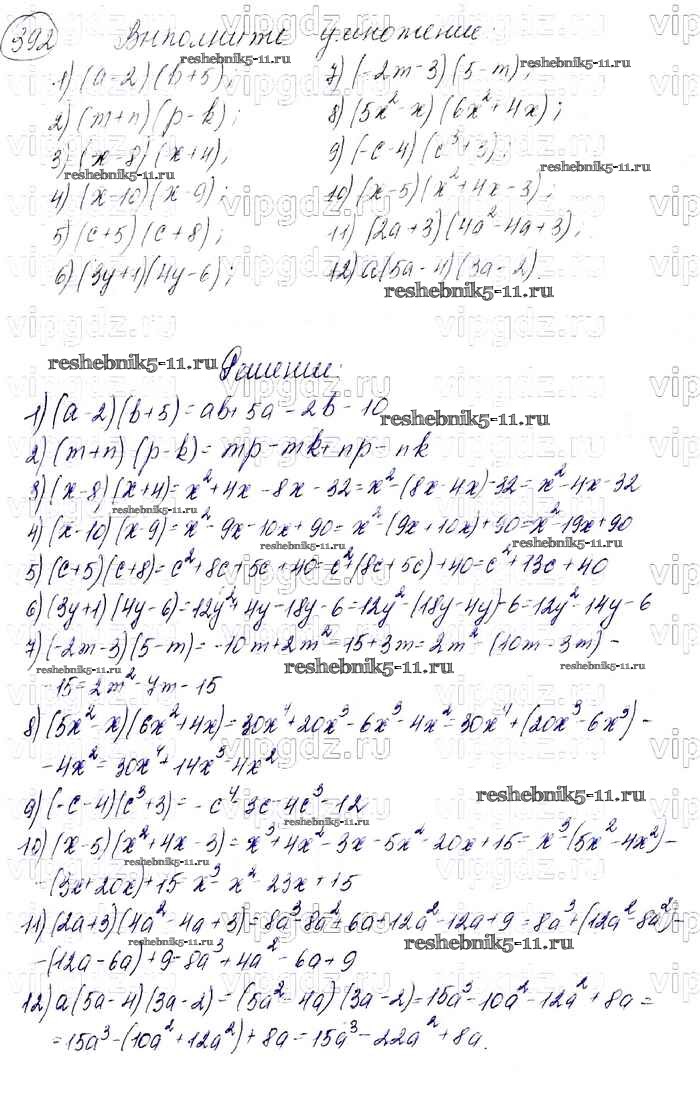 392 Выполните умножение:
1) (a-2)(b+5);
2) (m+n)(p-k);
3) (x-8)(x+4);
4) (x-10)(x-9);
5) (c+5)(c+8);
6) (3y+1)(4y-6);
7) (-2m-3)(5-m);
8) (5x²-x)(6x²+4x);
9) (-c-4)(c³+3);
10) (x-5)(x²+4x-3);
11) (2a+3)(4a²-4a+3);
12) a(5a-4)(3a-2).
reshebnik5-11.ru
Решение:
1) (a-2)(b+5)=ab+5a-2b-10
2) (m+n)(p-k)=mp-mk+np-nk
3) (x-8)(x+4)=x²+4x-8x-32=x²-(8x-4x)-32=x²-4x-32
4) (x-10)(x-9)=x²-9x-10x+90=x²-(9x+10x)+90=x²-19x+90
5) (c+5)(c+8)=c²+8c+5c+40=c²+(8c+5c)+40=c²+13c+40
6) (3y+1)(4y-6)=12y²+4y-18y-6=12y²-(18y-4y)-6=12y²-14y-6
7) (-2m-3)(5-m)=-10m+2m²-15+3m=2m²-(10m-3m)-
-15=2m²-7m-15
8) (5x²-x)(6x²+4x)=30x⁴+20x³-6x³-4x²=30x⁴+(20x³-6x³)-
-4x²=30x⁴+14x³-4x²
9) (-c-4)(c³+3)=-c⁴-3c-4c³-12
10) (x-5)(x²+4x-3)=x³+4x²-3x-5x²-20x+15=x³-(5x²-4x²)-
-(3x+20x)+15=x³-x²-23x+15
11) (2a+3)(4a²-4a+3)=8a³-8a²+6a+12a²-12a+9=8a³+(12a²-8a²)-
-(12a-6a)+9=8a³+4a²-6a+9
12) a(5a-4)(3a-2)=(5a²-4a)(3a-2)=15a³-10a²-12a²+8a=
=15a³-(10a²+12a²)+8a=15a³-22a²+8a.